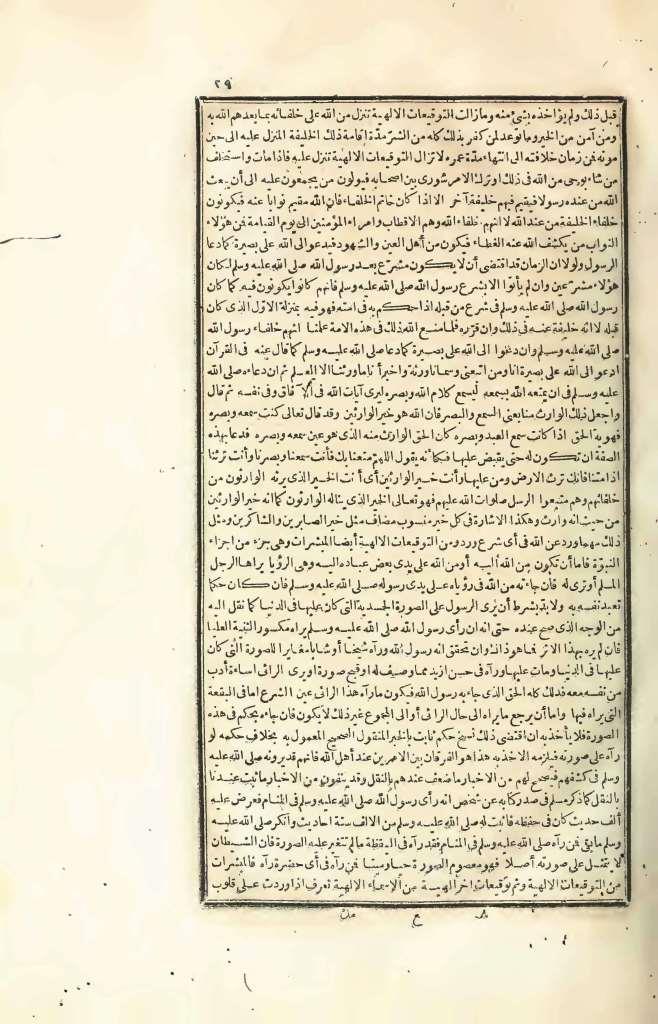 ٢٩
قبل ذلك ولم يؤاخذه بشئ منه وما زالت التوقيعات الالهية تنزل من الله على خلفائه بما يعدهم الله به
ومن آمن من الخير وما توعد لمن كفر بذلك كله من الشر مدة اقامة ذلك الخليفة المنزل عليه الى حين
موته فمن زمان خلافته الى انتهاء مدة عمره لا تزال التوقيعات الالهية تنزل عليه فاذا مات واستخلف
من شاء بوحى من الله فى ذلك او ترك الامر شورى بين اصحابه فيولون من يجمعون عليه الى أن يبعث
الله من عنده رسولا فيقيم فيهم خليفة آخر الا اذا كان خاتم الخلفاء فان الله مقيم نوابا عنه فيكونون
خلفاء الخليفة من عند الله لا انهم خلفاء الله وهم الاقطاب وامراء المؤمنين الى يوم القيامة فمن هؤلاء
النواب من يكشف الله عنه الغطاء فيكون من أهل العين والشهود فيدعو الى الله على بصيرة كما دعا
الرسول ولولا ان الزمان قد اقتضى أن لا يكون مشرع بعد رسول الله صلى الله عليه وسلم لكان
هؤلاء مشرعين وان لم يأتوا الا بشرع رسول الله صلى الله عليه وسلم فانهم كانوا يكونون فيه كما كان
رسول الله صلى الله عليه وسلم فى شرع من قبله اذا حكم به فى امته فهو فيه بمنزلة الاول الذى كان
قبله لا انه خليفة عنه فى ذلك وان قرره فلما منع الله ذلك فى هذه الامة علمنا انهم خلفاء رسول الله
صلى الله عليه وسلم وان دعوا الى الله على بصيرة كما دعا صلى الله عليه وسلم كما قال عنه فى القرآن
ادعو الى الله على بصيرة انا ومن اتبعنى وسمانا ورثة واخبر أنا ما ورثنا الا العلم ثم ان دعاءه صلى الله
عليه وسلم فى ان يمتعه الله بسمعه ليسمع كلام الله وبصره ليرى آيات الله فى الآفاق وفى نفسه ثم قال
واجعل ذلك الوارث منا يعنى السمع والبصر فان الله هو خير الوارثين وقد قال تعالى كنت سمعه وبصره
فهوية الحق اذا كانت سمع العبد وبصره كان الحق الوارث منه الذى هو عين سمعه وبصره فدعا بهذه
الصفة ان تكون له حتى يقبض عليها فكأنه يقول اللهم متعنا بك فأنت سمعنا وبصرنا وأنت ترثنا
اذا متنا فانك ترث الارض ومن عليها وأنت خير الوارثين أى أنت الخير الذى يرثه الوارثون من
خلفائهم وهم متبعوا الرسل صلوات الله عليهم فهو تعالى الخير الذى يناله الوارثون كما انه خير الوارثين
من حيث انه وارث وهكذا الاشارة فى كل خير منسوب مضاف مثل خير الصابرين والشاكرين ومثل
ذلك مهما ورد عن الله فى أى شرع ورد ومن التوقيعات الالهية أيضا المبشرات وهى جزء من اجزاء
النبوة فاما أن تكون من الله اليه أو من الله على يدى بعض عباده اليه وهى الرؤيا يراها الرجل
المسلم أو ترى له فان جاءته من الله فى رؤياه على يدى رسوله صلى الله عليه وسلم فان كان حكما
تعبد نفسه به ولا بد بشرط أن يرى الرسول على الصورة الجسدية التى كان عليها فى الدنيا كما نقل اليه
من الوجه الذى صح عنده حتى انه ان رأى رسول الله صلى الله عليه وسلم يراه مكسور الثنية العليا
فان لم يره بهذا الاثر فما هو ذاك وان تحقق انه رسول الله ورآه شيخا أو شابا مغايرا للصورة التى كان
عليها فى الدنيا ومات عليها ورآه فى حسن ازيد مما وصف له او قبح صورة او يرى الرائى اساءة أدب
من نفسه معه فذلك كله الحق الذى جاء به رسول الله فيكون ما رآه هذا الرائى عين الشرع اما فى البقعة
التى يراه فيها واما أن يرجع ما يراه الى حال الرائى أو الى المجموع غير ذلك لا يكون فان جاءه بحكم فى هذه
الصورة فلا يأخذ به ان اقتضى ذلك نسخ حكم ثابت بالخبر المنقول الصحيح المعمول به بخلاف حكمه لو
رآه على صورته فيلزمه الاخذ به هذا هو الفرقان بين الامرين عند أهل الله فانهم قد يرونه صلى الله عليه
وسلم فى كشفهم فيصحح لهم من الاخبار ما ضعف عندهم بالنقل وقد ينفون من الاخبار ما ثبت عندنا
بالنقل كما ذكر مسلم فى صدر كتابه عن شخص انه رأى رسول الله صلى الله عليه وسلم فى المنام فعرض عليه
ألف حديث كان فى حفظه فاثبت له صلى الله عليه وسلم من الالف ستة احاديث وأنكر صلى الله عليه
وسلم ما بقى فمن رآه صلى الله عليه وسلم فى المنام فقد رآه فى اليقظة ما لم تتغير عليه الصورة فان الشيطان
لا يتمثل على صورته أصلا فهو معصوم الصورة حيا وميتا فمن رآه فى أى حضرة رآه فالمبشرات
من التوقيعات الالهية وثم توقيعات اخر الهية من الاسماء الالهية تعرف اذا وردت على قلوب